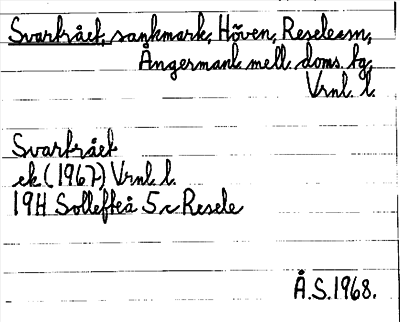 Svartrået, sankmark, Höven, Resele sn,
Ångermanl. mell. doms. tg,
Vrnl. l.
Svartrået
ek (1967) Vrnl. l.
19H Sollefteå 5c Resele
Å.S.1968.